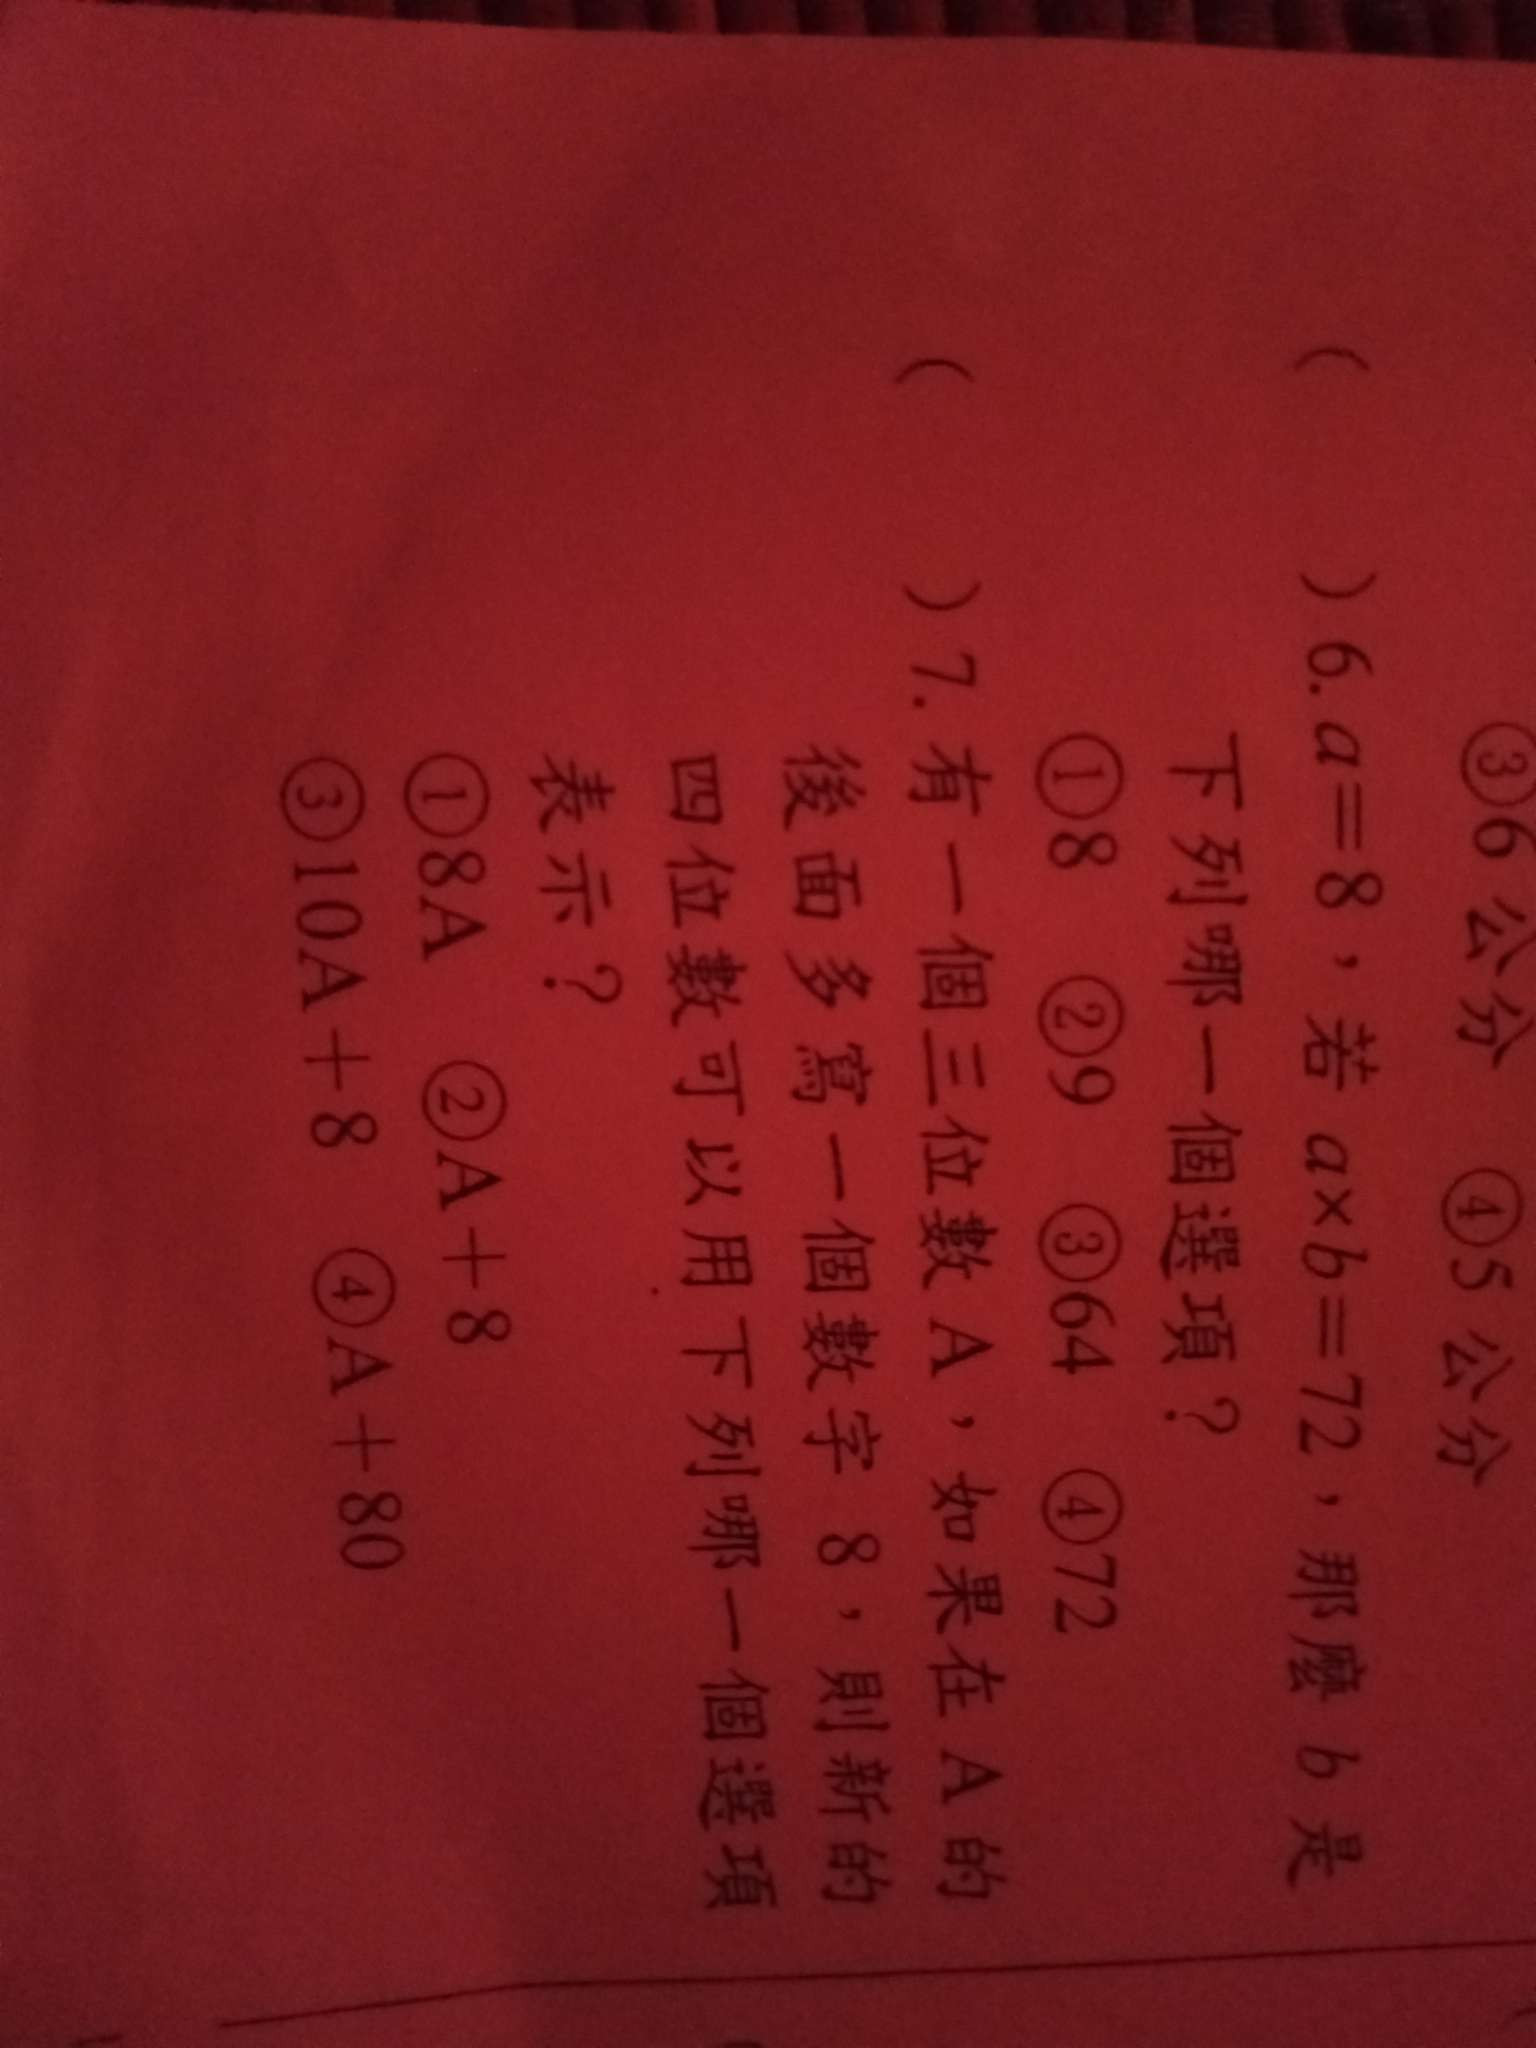 ③6 公分 ④5 公分
( )6. a=8，若 a×b=72，那麼 b 是
下列哪一個選項？
①8 ②9 ③64 ④72
( )7. 有一個三位數 A，如果在 A 的
後面多寫一個數字 8，則新的
四位數可以用下列哪一個選項
表示？
①8A ②A＋8
③10A＋8 ④A＋80